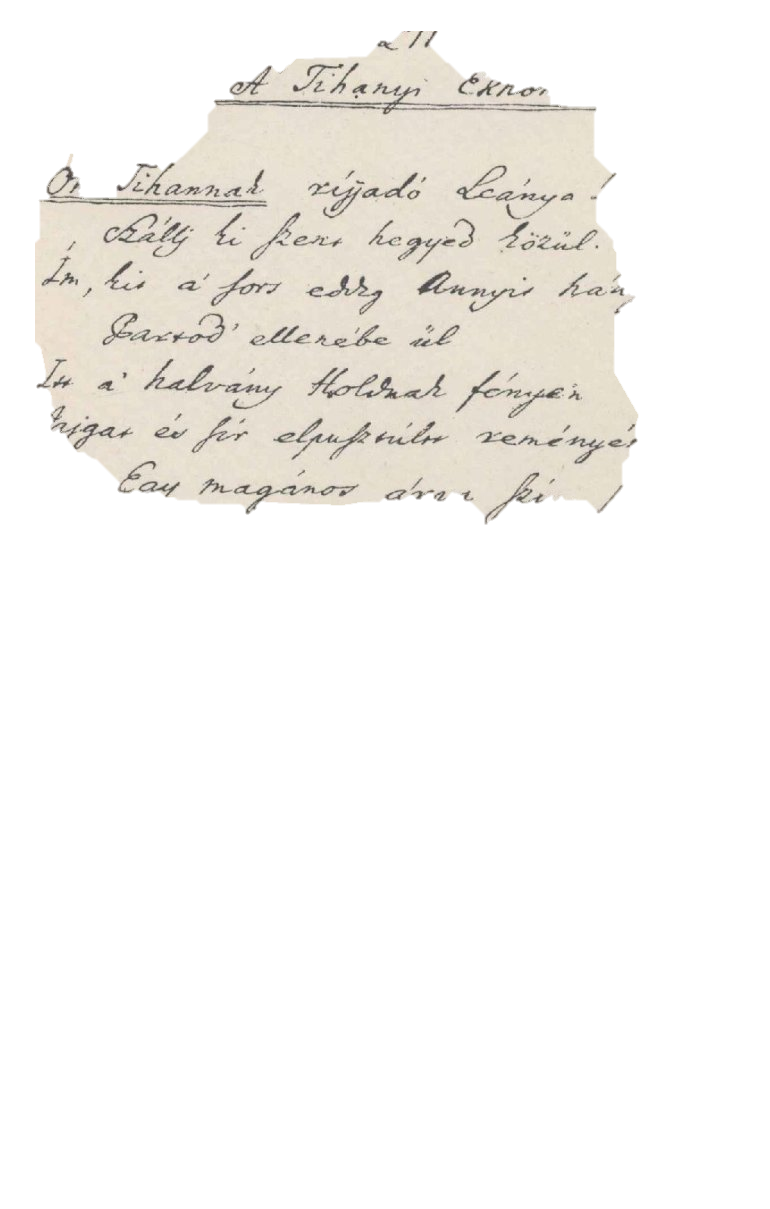 A Tihanyi
Tihannak ríjjadó Leánya!
Szállj ki szent hegyed közűl.
Ím, kit a' sors eddig Annyit
Partod' ellenébe űl
Itt a' halvány Holdnak fényén
és sír elpusztúlt reményén
Egy magános árva szív